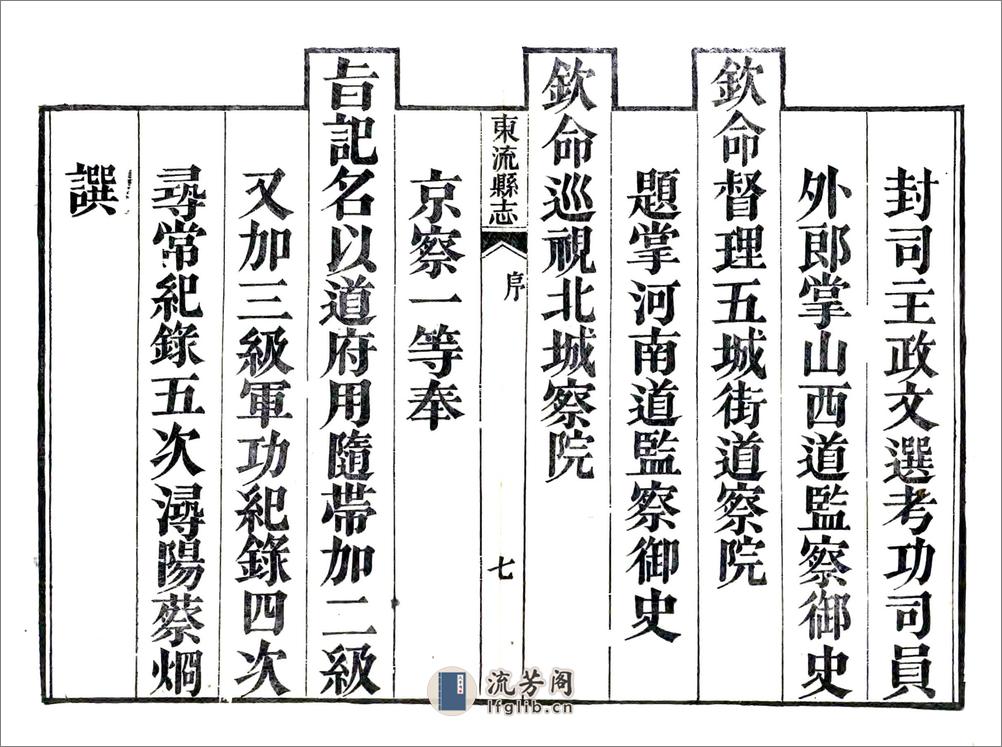 封司主政文選考功司員
外郎掌山西道監察御史
欽命督理五城街道察院
題掌河南道監察御史
欽命巡視北城察院
東流縣志 序 七
京察一等奉
旨記名以道府用隨帶加二級
又加三級軍功紀錄四次
尋常紀錄五次潯陽蔡烱
譔
流芳阁
lfglib.cn